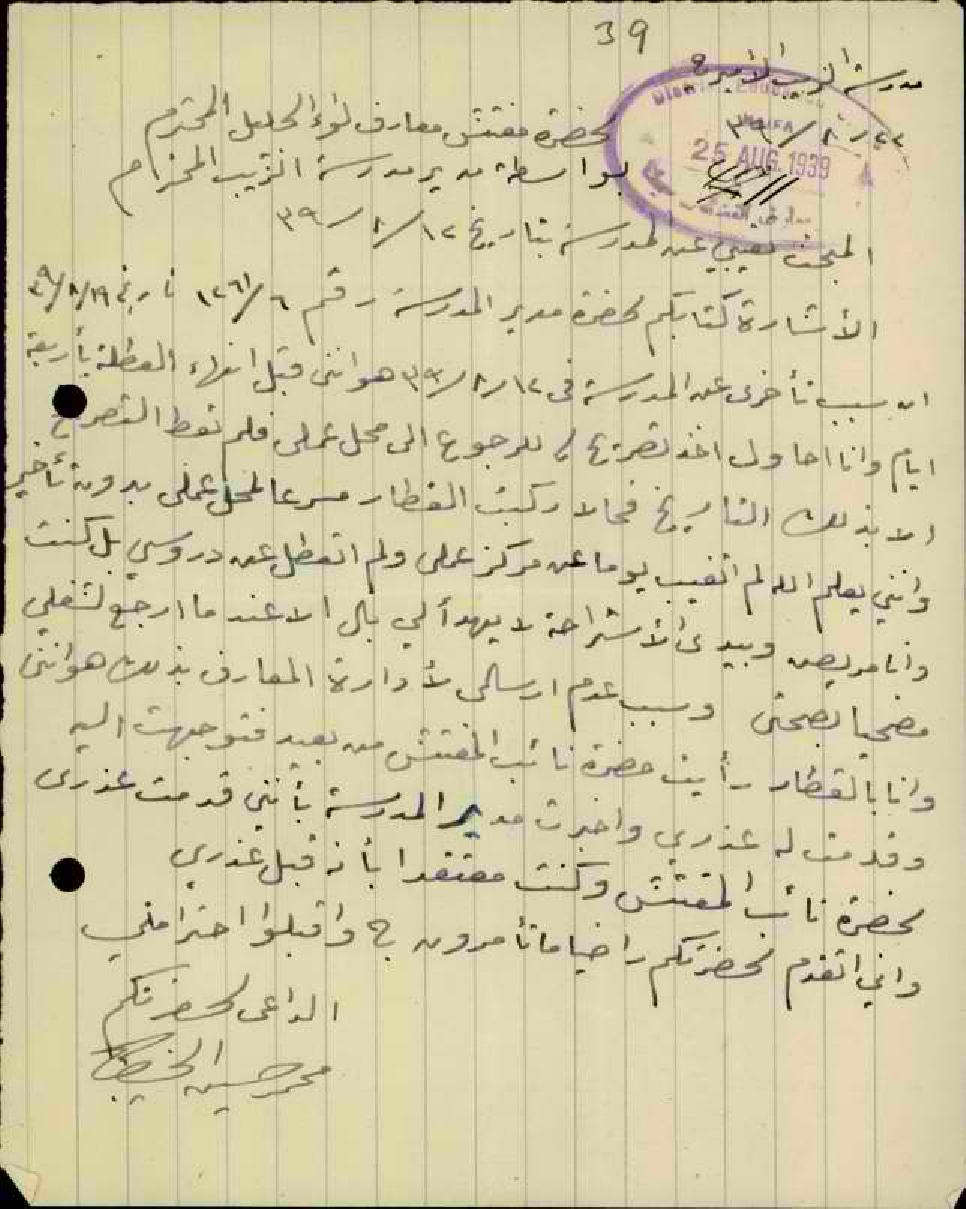 39
مدرسة الزيب الأميرية
٢٢/٨/٣٩
HAIFA
25 AUG. 1939
لحضرة مفتش معارف لواء الجليل المحترم
بواسطة مدير مدرسة الزيب المحترم
المبحث تغيبي عن المدرسة بتاريخ ١٢/٨/٣٩
الأشارة كتابكم لحضرة مدير المدرسة رقم ٦/١٢٦١ تاريخ ١٩/٨/٣٩
ان سبب تأخرى عن المدرسة فى ١٢/٨/٣٩ هو اننى قبل انتهاء العطلة بأربعة
ايام وانا احاول اخذ تصريح لى للرجوع الى محل عملى فلم تعط التصريح
الا بذلك التاريخ فحالا ركبت القطار مسرعا لمحل عملى بدون تأخير
وانني يعلم الله لم اتغيب يوما عن مركز عملى ولم اتعطل عن دروسي بل كنت
وانا مريض وبيدى الأستراحة لا يهدأ لي بال الا عند ما ارجع لشغلي
مضحيا بصحتى وسبب عدم ارسالى لأدارة المعارف بذلك هو اننى
وانا بالقطار رأيت حضرة نائب المفتش من بعيد فتوجهت اليه
وقدمت له عذري واخبرت مدير المدرسة بأنني قدمت عذرى
لحضرة نائب المفتش وكنت معتقدا بأنه قبل عذري
واني اتقدم لحضرتكم راضيا ما تأمرون به واقبلوا احترامي
الداعى لحضرتكم
محمد حسين الخطيب